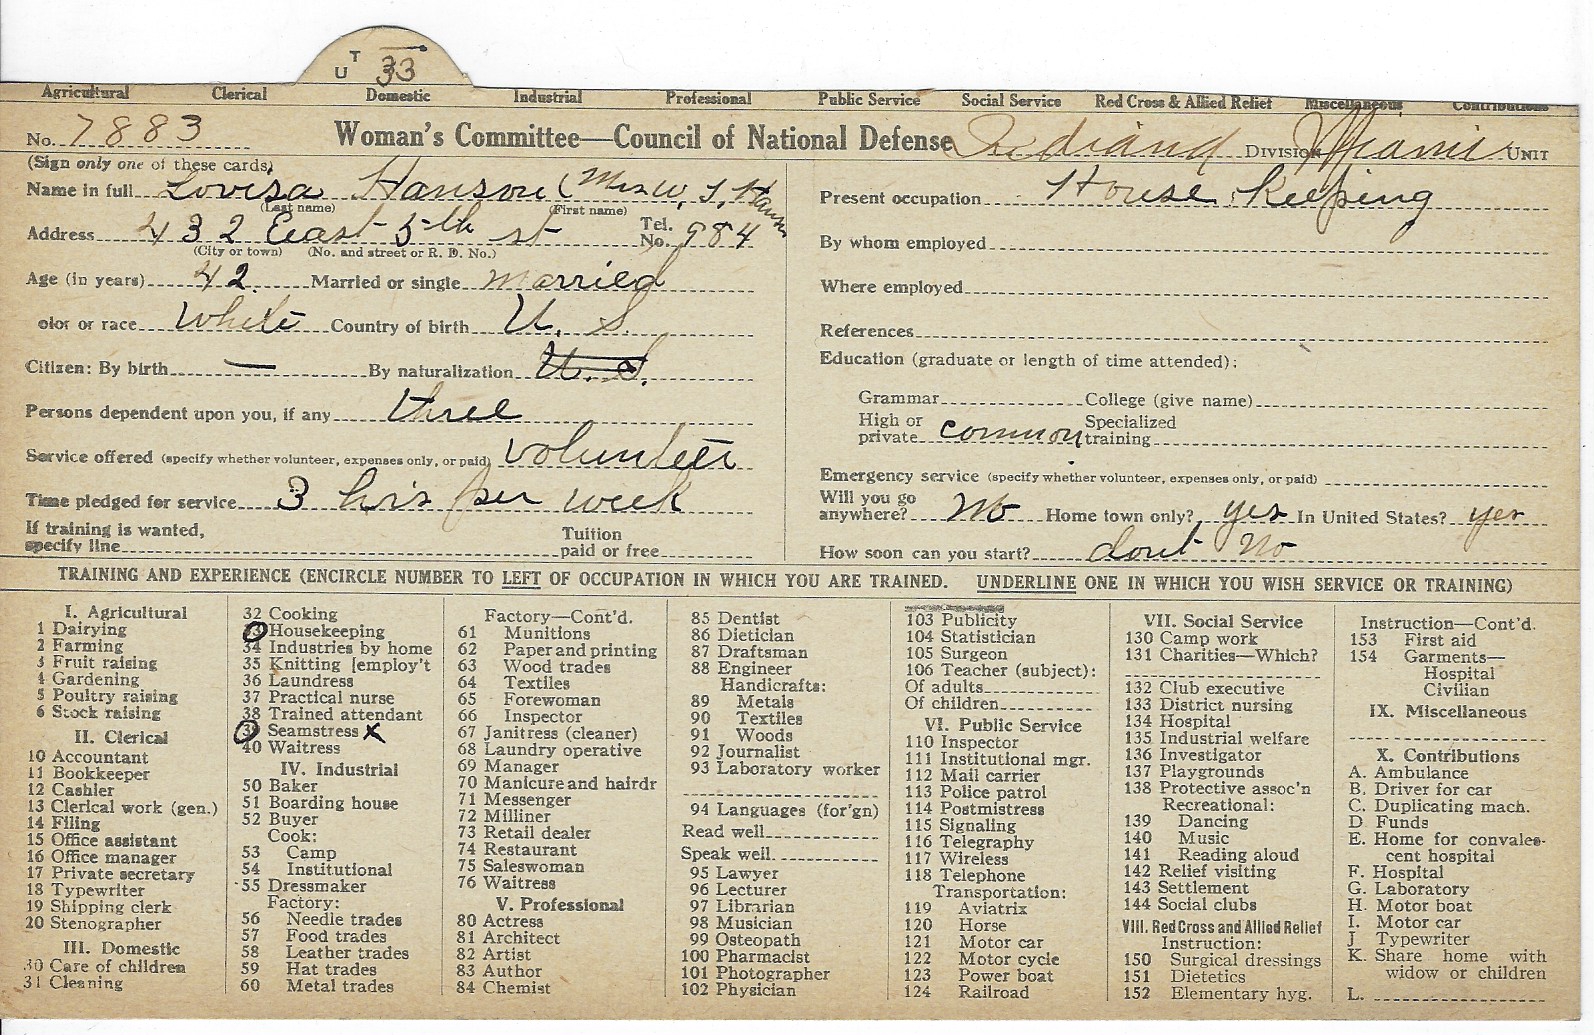 U T 33
Agricultural Clerical Domestic Industrial Professional Public Service Social Service Red Cross & Allied Relief Miscellaneous Contributions
No. 7883 Woman's Committee—Council of National Defense Indiana DIVISION Miami UNIT
(Sign only one of these cards)
Name in full Lovisa Hanson (Mrs W. T. Hanson
(Last name) (First name)
Address 432 East 5th st Tel. No. 984
(City or town) (No. and street or R. D. No.)
Age (in years) 42 Married or single married
olor or race White Country of birth U. S.
Citizen: By birth — By naturalization U. S.
Persons dependent upon you, if any three
Service offered (specify whether volunteer, expenses only, or paid) volunteer
Time pledged for service 3 hrs per week
If training is wanted, specify line Tuition paid or free
Present occupation House Keeping
By whom employed
Where employed
References
Education (graduate or length of time attended):
Grammar College (give name)
High or private common Specialized training
Emergency service (specify whether volunteer, expenses only, or paid)
Will you go anywhere? No Home town only? yes In United States? yes
How soon can you start? dont No
TRAINING AND EXPERIENCE (ENCIRCLE NUMBER TO LEFT OF OCCUPATION IN WHICH YOU ARE TRAINED. UNDERLINE ONE IN WHICH YOU WISH SERVICE OR TRAINING)
I. Agricultural
1 Dairying
2 Farming
3 Fruit raising
4 Gardening
5 Poultry raising
6 Stock raising
II. Clerical
10 Accountant
11 Bookkeeper
12 Cashier
13 Clerical work (gen.)
14 Filing
15 Office assistant
16 Office manager
17 Private secretary
18 Typewriter
19 Shipping clerk
20 Stenographer
III. Domestic
30 Care of children
31 Cleaning
32 Cooking
33 Housekeeping
34 Industries by home
35 Knitting [employ't
36 Laundress
37 Practical nurse
38 Trained attendant
39 Seamstress x
40 Waitress
IV. Industrial
50 Baker
51 Boarding house
52 Buyer
Cook:
53 Camp
54 Institutional
55 Dressmaker
Factory:
56 Needle trades
57 Food trades
58 Leather trades
59 Hat trades
60 Metal trades
Factory—Cont'd.
61 Munitions
62 Paper and printing
63 Wood trades
64 Textiles
65 Forewoman
66 Inspector
67 Janitress (cleaner)
68 Laundry operative
69 Manager
70 Manicure and hairdr
71 Messenger
72 Milliner
73 Retail dealer
74 Restaurant
75 Saleswoman
76 Waitress
V. Professional
80 Actress
81 Architect
82 Artist
83 Author
84 Chemist
85 Dentist
86 Dietician
87 Draftsman
88 Engineer
Handicrafts:
89 Metals
90 Textiles
91 Woods
92 Journalist
93 Laboratory worker
94 Languages (for'gn)
Read well
Speak well
95 Lawyer
96 Lecturer
97 Librarian
98 Musician
99 Osteopath
100 Pharmacist
101 Photographer
102 Physician
103 Publicity
104 Statistician
105 Surgeon
106 Teacher (subject):
Of adults
Of children
VI. Public Service
110 Inspector
111 Institutional mgr.
112 Mail carrier
113 Police patrol
114 Postmistress
115 Signaling
116 Telegraphy
117 Wireless
118 Telephone
Transportation:
119 Aviatrix
120 Horse
121 Motor car
122 Motor cycle
123 Power boat
124 Railroad
VII. Social Service
130 Camp work
131 Charities—Which?
132 Club executive
133 District nursing
134 Hospital
135 Industrial welfare
136 Investigator
137 Playgrounds
138 Protective assoc'n
Recreational:
139 Dancing
140 Music
141 Reading aloud
142 Relief visiting
143 Settlement
144 Social clubs
VIII. Red Cross and Allied Relief
Instruction:
150 Surgical dressings
151 Dietetics
152 Elementary hyg.
Instruction—Cont'd.
153 First aid
154 Garments—
Hospital
Civilian
IX. Miscellaneous
X. Contributions
A. Ambulance
B. Driver for car
C. Duplicating mach.
D Funds
E. Home for convales-
cent hospital
F. Hospital
G. Laboratory
H. Motor boat
I. Motor car
J Typewriter
K. Share home with
widow or children
L.